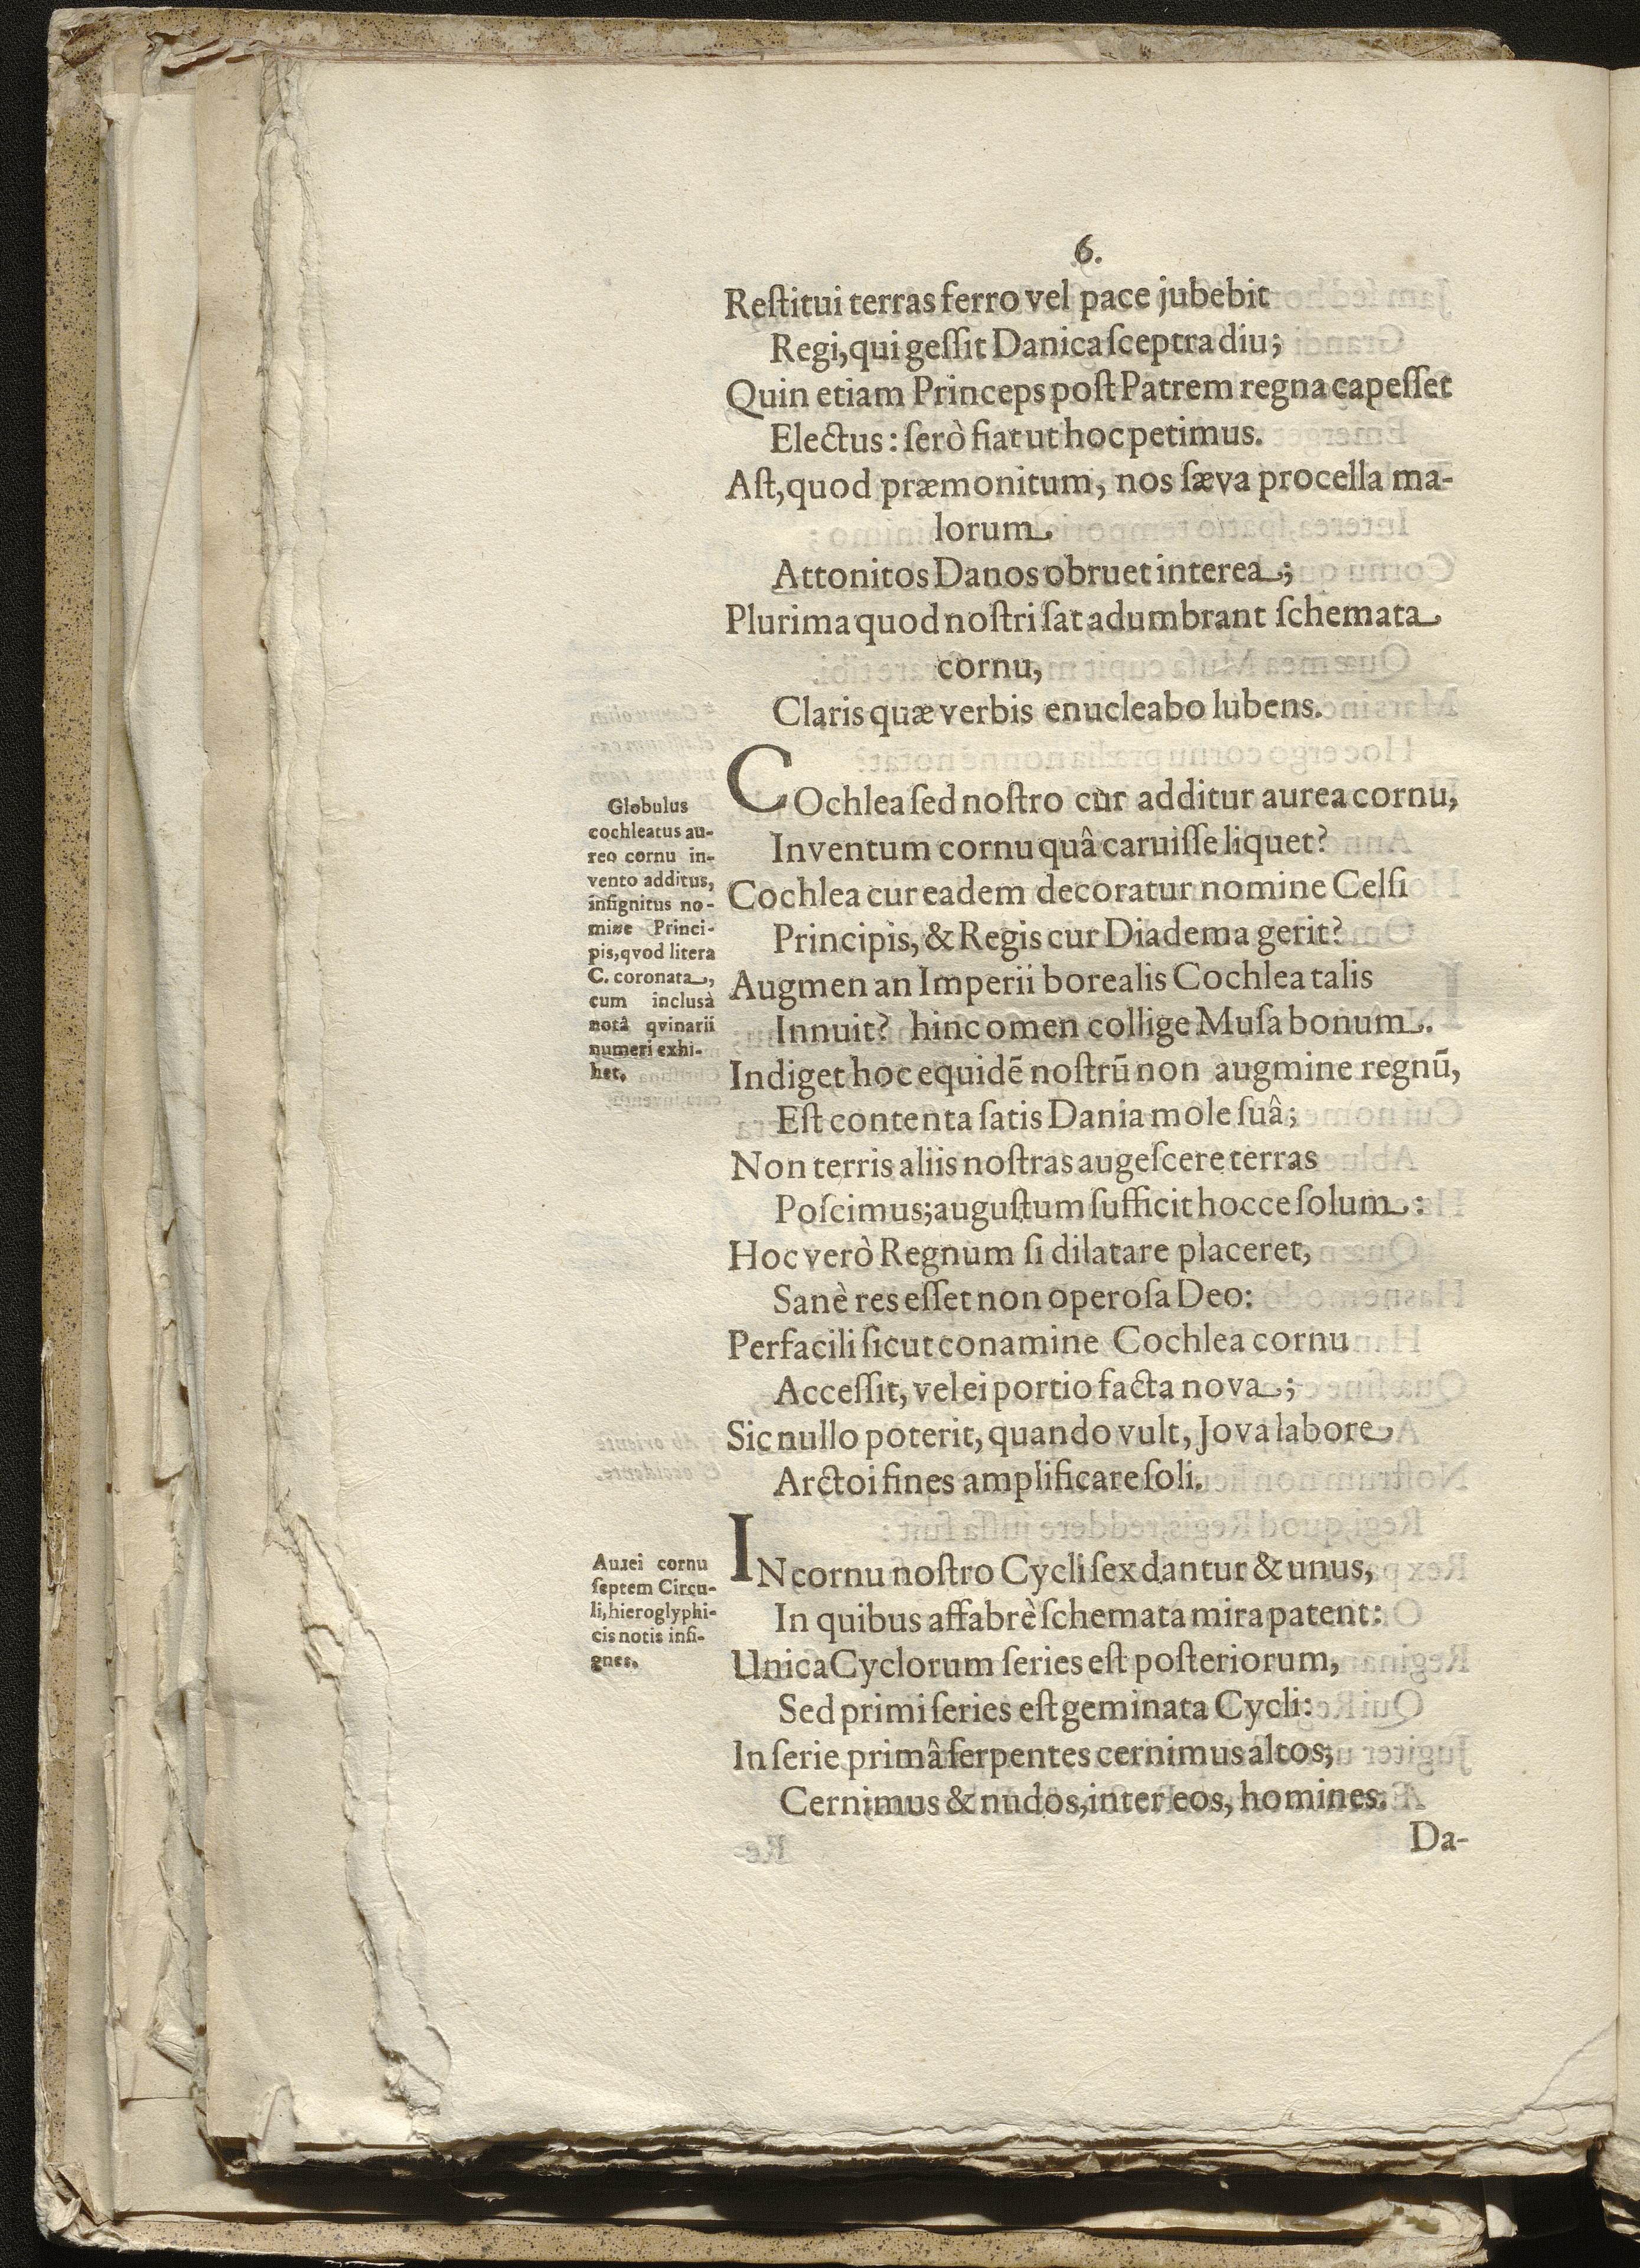 6.
Reſtitui terras ferro vel pace jubebit
Regi, qui geſſit Danica ſceptra diu;
Quin etiam Princeps poſt Patrem regna capeſſet
Electus: ſerò fiat ut hoc petimus.
Aſt, quod præmonitum, nos ſæva procella ma-
lorum
Attonitos Danos obruet interea;
Plurima quod noſtri ſat adumbrant ſchemata
cornu,
Claris quæ verbis enucleabo lubens.
Globulus
cochleatus au-
reo cornu in-
vento additus,
inſignitus no-
mine Princi-
pis, qvod litera
C. coronata,
cum inclusà
notâ qvinarii
numeri exhi-
bet.
COchlea ſed noſtro cur additur aurea cornu,
Inventum cornu quâ caruiſſe liquet?
Cochlea cur eadem decoratur nomine Celſi
Principis, & Regis cur Diadema gerit?
Augmen an Imperii borealis Cochlea talis
Innuit? hinc omen collige Muſa bonum.
Indiget hoc equidē noſtrū non augmine regnū,
Eſt contenta ſatis Dania mole ſuâ;
Non terris aliis noſtras augeſcere terras
Poſcimus; auguſtum ſufficit hocce ſolum:
Hoc verò Regnum ſi dilatare placeret,
Sanè res eſſet non operoſa Deo:
Perfacili ſicut conamine Cochlea cornu
Acceſſit, vel ei portio facta nova;
Sic nullo poterit, quando vult, Jova labore
Arctoi fines amplificare ſoli.
Aurei cornu
ſeptem Circu-
li, hieroglyphi-
cis notis inſi-
gnes.
IN cornu noſtro Cycli ſex dantur & unus,
In quibus affabrè ſchemata mira patent:
Unica Cyclorum ſeries eſt poſteriorum,
Sed primi ſeries eſt geminata Cycli:
In ſerie primâ ſerpentes cernimus altos;
Cernimus & nudos, inter eos, homines.
Da-